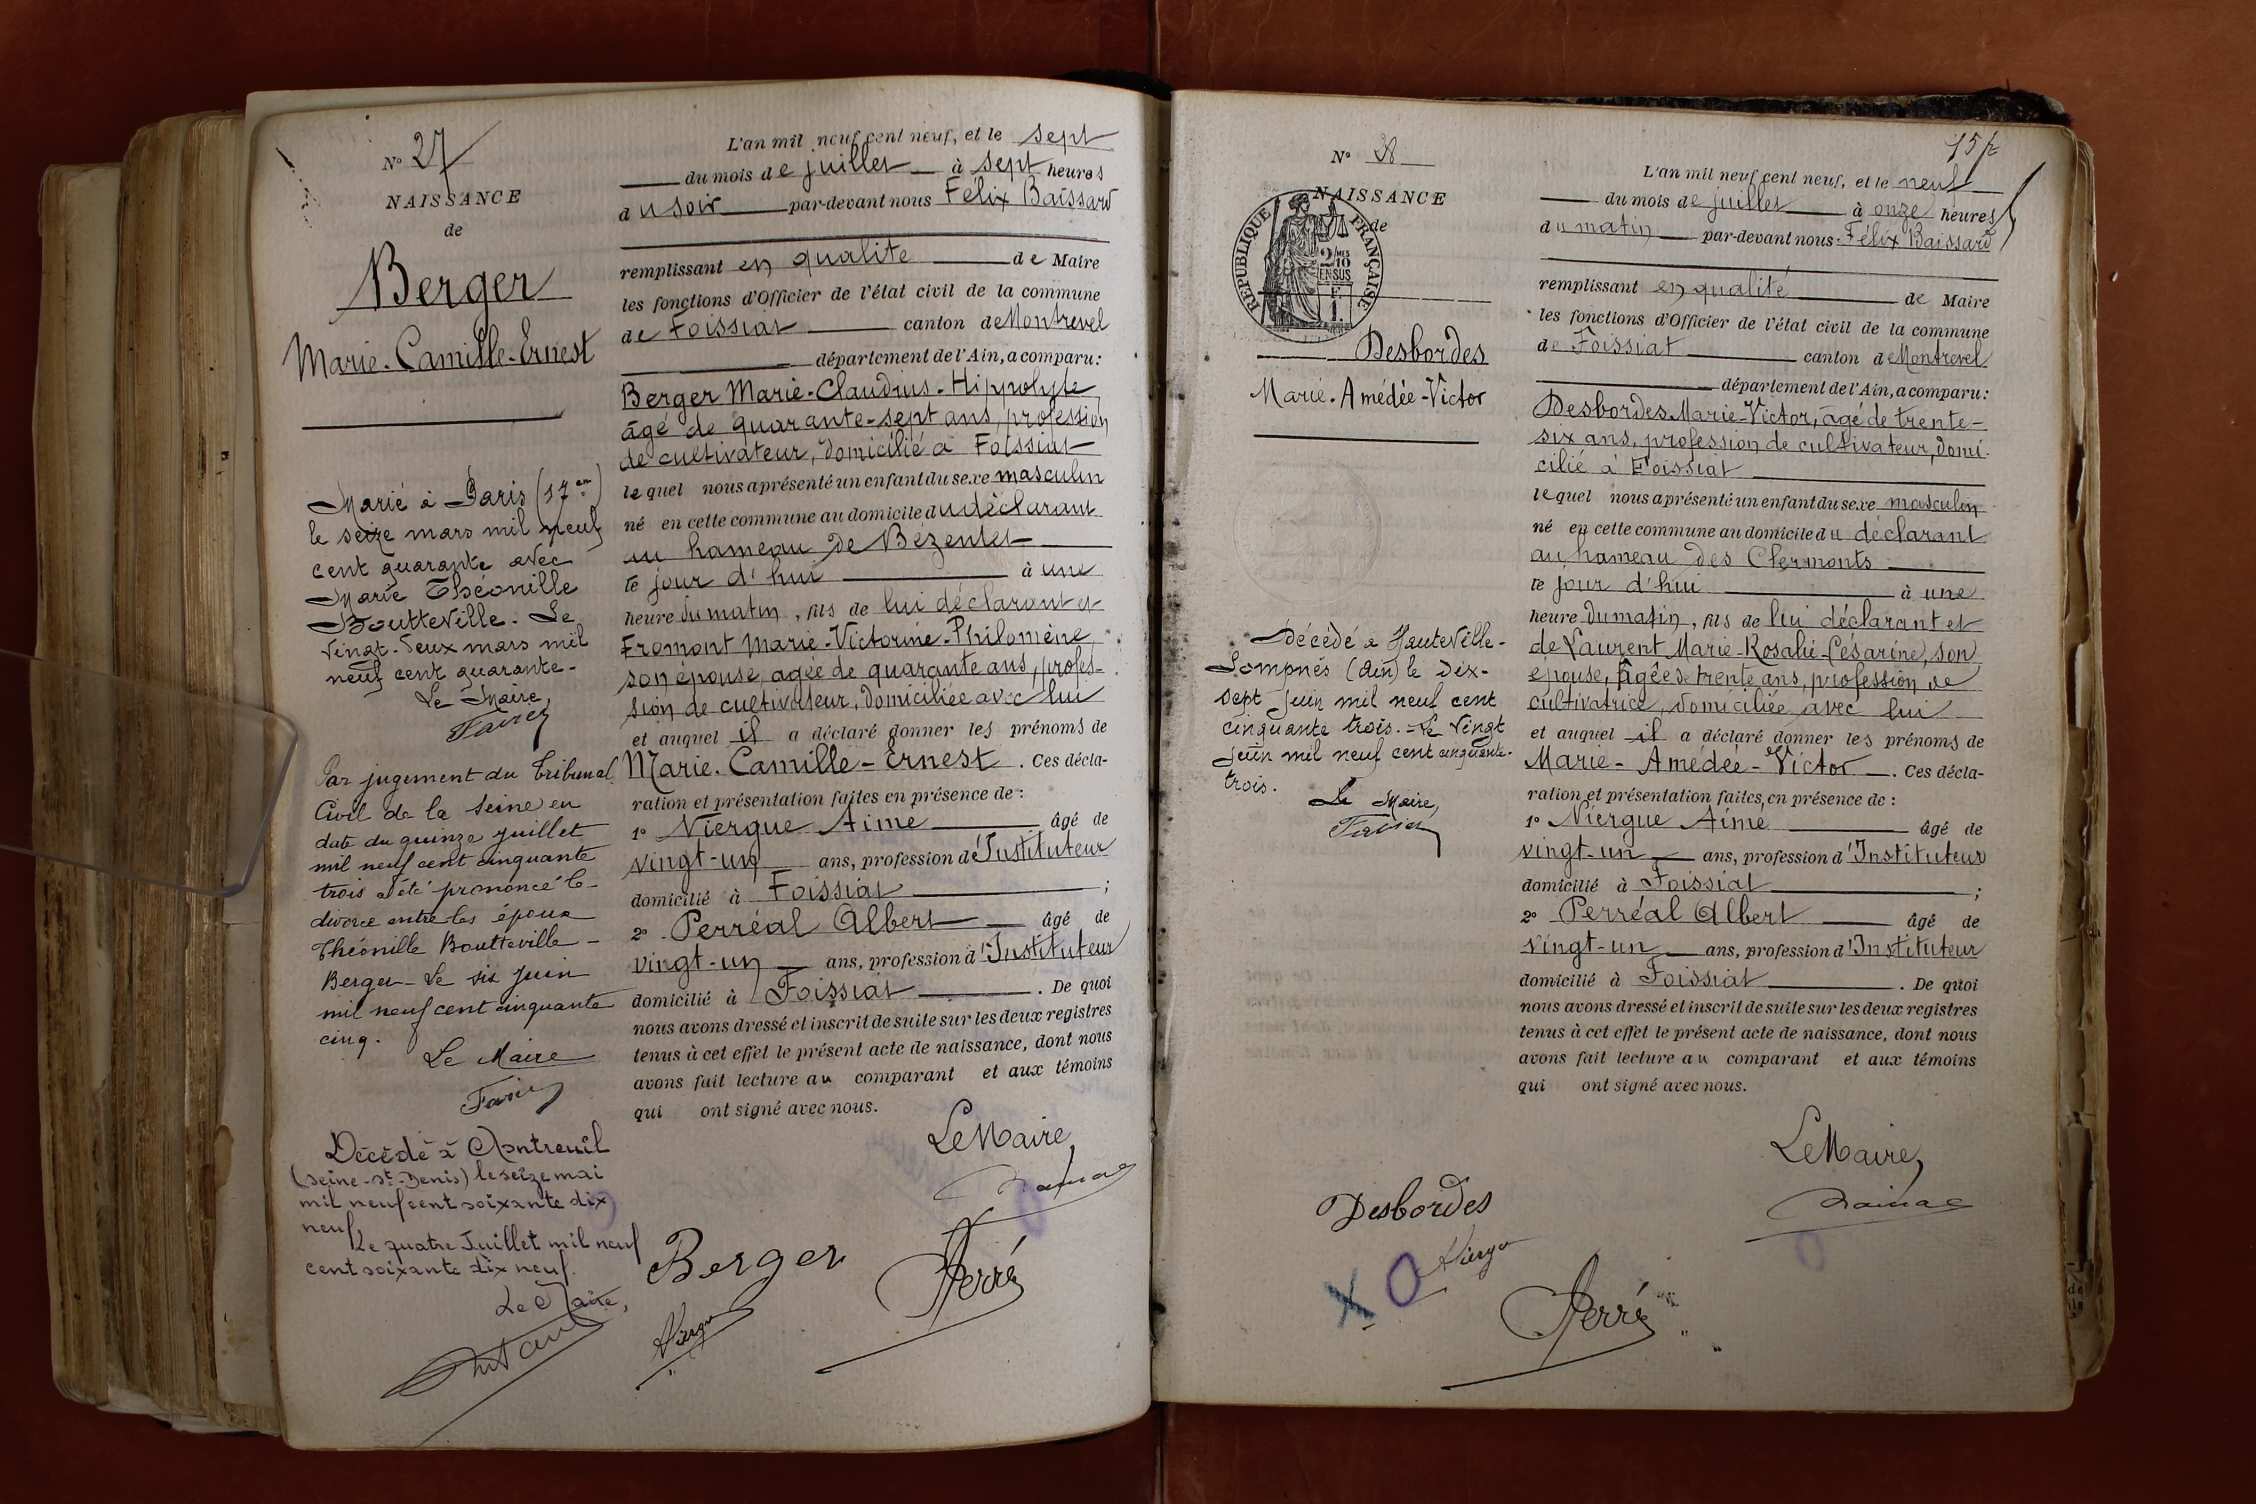 N° 27
NAISSANCE
de
Berger
Marie-Camille-Ernest
Marié à Paris (17em)
le seize mars mil neuf
cent quarante avec
Marie Théonille
Boutteville. Le
vingt-deux mars mil
neuf cent quarante-
Le Maire,
Favier
Par jugement du Tribunal
Civil de la Seine en
date du quinze juillet
mil neuf cent cinquante
trois a été prononcé le
divorce entre les époux
Théonille Boutteville -
Berger - Le six juin
mil neuf cent cinquante
cinq.
Le Maire
Favier
Décédé à Montreuil
(Seine-St-Denis) le seize mai
mil neuf cent soixante dix
neuf
Le quatre Juillet mil neuf
cent soixante dix neuf.
Le Maire,
L'an mil neuf cent neuf, et le sept
du mois de juillet à sept heures
du soir par-devant nous Félix Baissard
remplissant en qualité de Maire
les fonctions d'Officier de l'état civil de la commune
de Foissiat canton de Montrevel
département de l'Ain, a comparu:
Berger Marie-Claudius-Hippolyte
âgé de quarante-sept ans, profession
de cultivateur, domicilié à Foissiat
lequel nous a présenté un enfant du sexe masculin
né en cette commune au domicile du déclarant
au hameau de Bézentet
le jour d'hui à une
heure du matin, fils de lui déclarant et
Fromont Marie-Victorine-Philomène,
son épouse, agée de quarante ans, profes-
sion de cultivateur, domiciliée avec lui
et auquel il a déclaré donner les prénoms de
Marie-Camille-Ernest. Ces décla-
ration et présentation faites en présence de:
1° Viergue Aimé âgé de
vingt-un ans, profession d'Instituteur
domicilié à Foissiat ;
2° Perréal Albert âgé de
vingt-un ans, profession d'Instituteur
domicilié à Foissiat. De quoi
nous avons dressé et inscrit de suite sur les deux registres
tenus à cet effet le présent acte de naissance, dont nous
avons fait lecture au comparant et aux témoins
qui ont signé avec nous.
Le Maire,
Berger
Viergue
15
N° 28
NAISSANCE
de
REPUBLIQUE FRANÇAISE
2/10
EN SUS
F
1.
Desbordes
Marie-Amédée-Victor
Décédé à Hauteville-
Lompnés (Ain) le dix-
sept juin mil neuf cent
cinquante trois. - Le vingt
juin mil neuf cent cinquante-
trois.
Le Maire,
Favier
L'an mil neuf cent neuf, et le neuf
du mois de juillet à onze heures
du matin par-devant nous Félix Baissard
remplissant en qualité de Maire
les fonctions d'Officier de l'état civil de la commune
de Foissiat canton de Montrevel
département de l'Ain, a comparu:
Desbordes Marie-Victor, âgé de trente-
six ans, profession de cultivateur, domi-
cilié à Foissiat
lequel nous a présenté un enfant du sexe masculin
né en cette commune au domicile du déclarant
au hameau des Clermonts
le jour d'hui à une
heure du matin, fils de lui déclarant et
de Laurent Marie-Rosalie-Césarine, son
épouse, âgée de trente ans, profession de
cultivatrice, domiciliée avec lui
et auquel il a déclaré donner les prénoms de
Marie-Amédée-Victor. Ces décla-
ration et présentation faites en présence de:
1° Viergue Aimé âgé de
vingt-un ans, profession d'Instituteur
domicilié à Foissiat ;
2° Perréal Albert âgé de
vingt-un ans, profession d'Instituteur
domicilié à Foissiat. De quoi
nous avons dressé et inscrit de suite sur les deux registres
tenus à cet effet le présent acte de naissance, dont nous
avons fait lecture au comparant et aux témoins
qui ont signé avec nous.
Le Maire,
Desbordes
Viergue